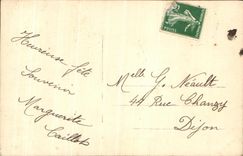 Heureuse fête
Souvenir
Marguerite
Caillot
Melle G. Neault
44 Rue Chanzy
Dijon